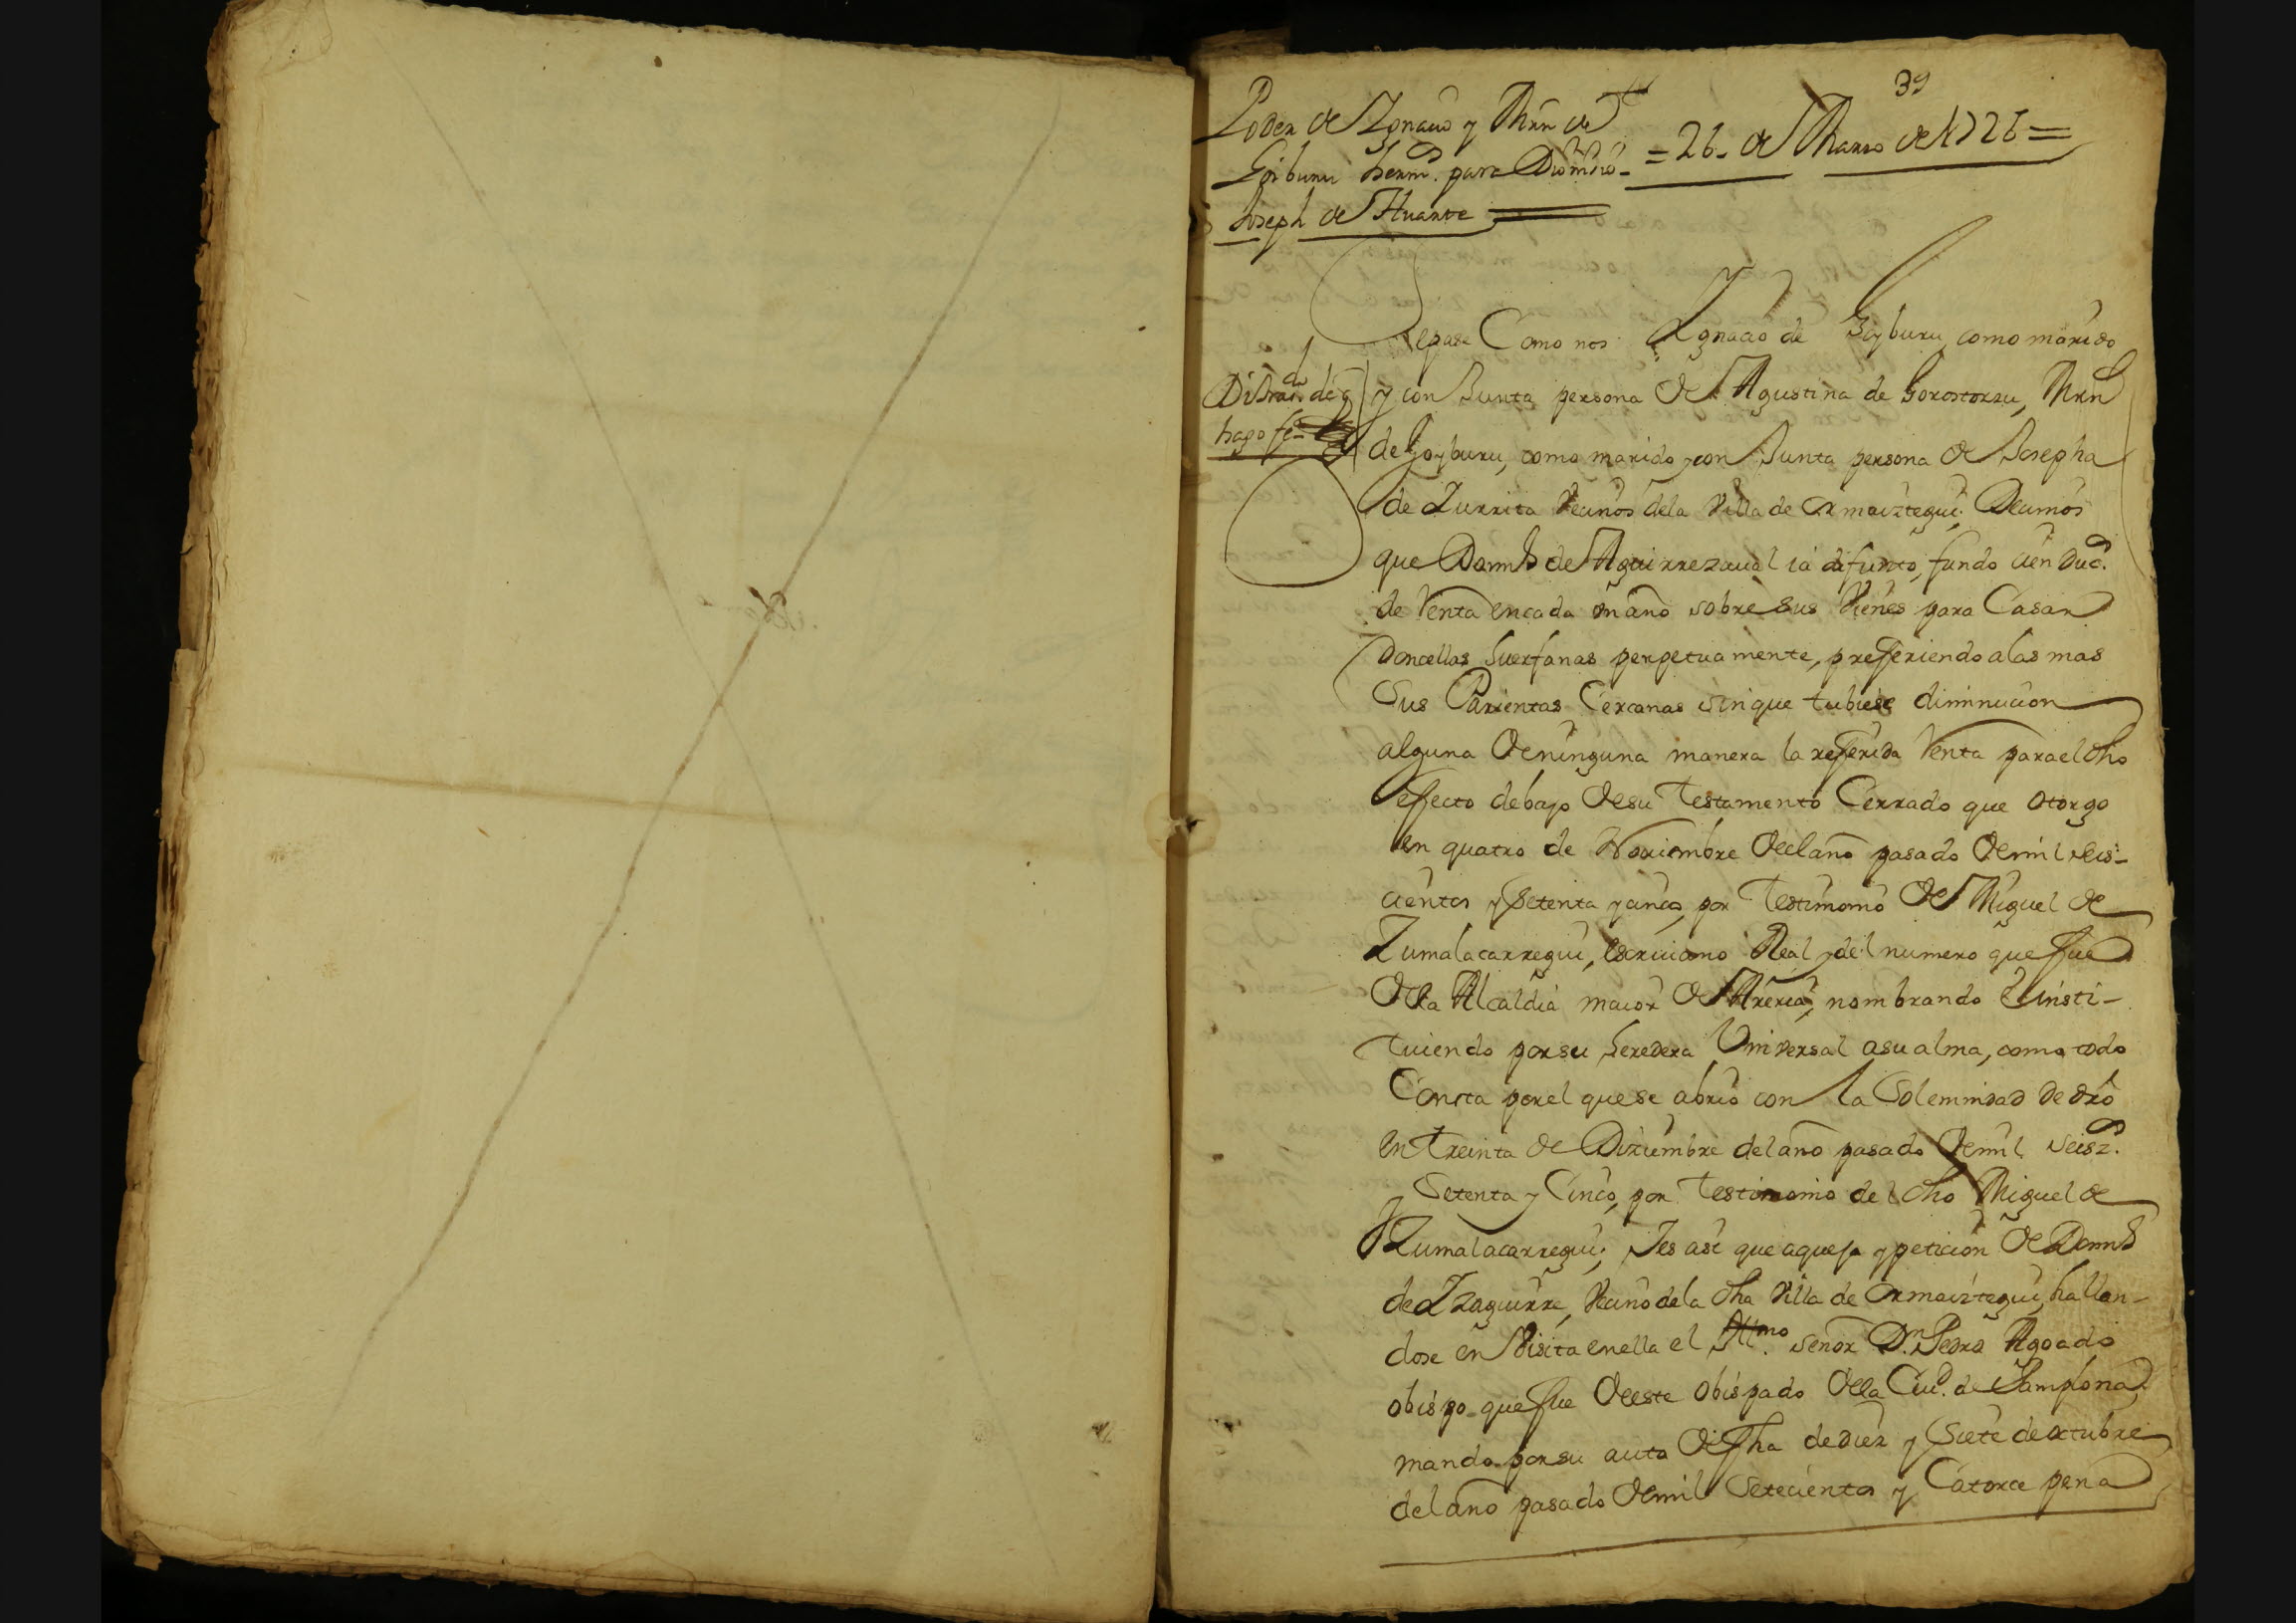 39
Poder de Ygnacio y Mrn de
Goiburu herm.s para Dionisio
Joseph de Huarte
= 26 de Marzo de 1726 =
Sepase Como nos Ygnacio de Goyburu, como marido
y con Junta persona de Agustina de Gorostorzu, Mrn
de Goyburu, como marido y con Junta persona de Josepha
de Zurrita Vecinos de la Villa de Ormaiztegui; Decimos
que Domin.o de Aguirrezaual ia difunto, fundo cien Duc.s
de Renta en cada un año sobre sus Vienes para Casar
Doncellas huerfanas perpetuamente, prefiriendo a las mas
Sus Parientas Cercanas sin que tubiese diminucion
alguna de ninguna manera la referida Renta para el dho
effecto debajo de su Testamento Cerrado que otorgo
en quatro de Nouiembre del año pasado de mil seis-
cientos y setenta y cinco, por Testimonio de Miguel de
Zumalacarregui, escriuano Real y del numero que fue
de la Alcaldia maior de Areria, nombrando e insti-
tuiendo por su heredera Vniversal a su alma, como todo
Consta por el que se abrio con la Solemnidad de dro
en treinta de Diziembre del año pasado de mil seisz.s
Setenta y Cinco, por testimonio del dho Miguel de
Zumalacarregui; Y es asi que a queja y peticion de Domin.o
de Yzaguirre, Vecino de la dha Villa de Ormaiztegui, hallan-
dose en Visita en ella el Ill.mo señor D.n Pedro Agoado
obispo que fue de este obispado de la Ciu.d de Pamplona,
mando por su auto de fha de diez y Siete de octubre
del año pasado de mil Setecientos y Catorce pena
hago fe